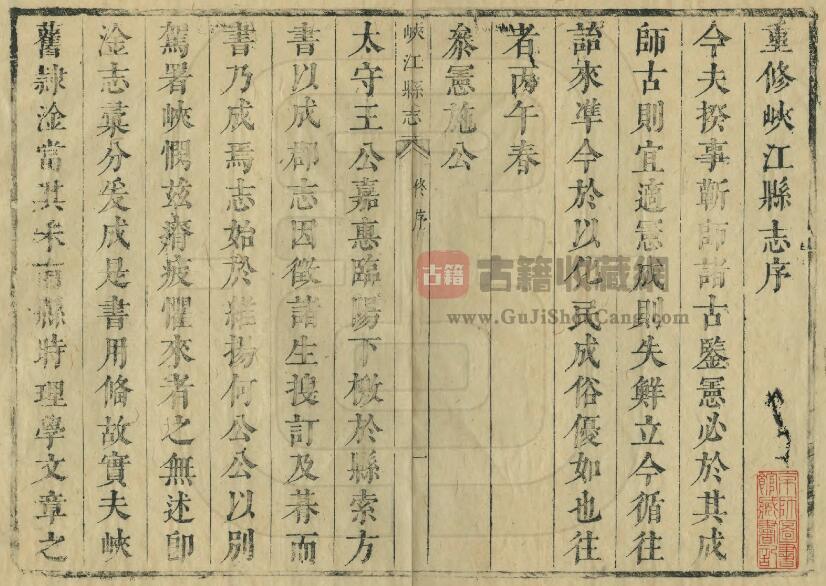 重修峽江縣志序
今夫揆事靳師諸古鑒憲必於其成
師古則宜適憲成則失鮮立今循往
詒來準今於以化民成俗優如也往
者丙午春
叅憲施公
峽江縣志 脩序 一
太守王公嘉惠臨陽下檄於縣索方
書以成郡志因徵諸生搜訂及朞而
書乃成焉志始於維揚何公公以別
駕署峽憫茲瘠疲懼來者之無述卽
淦志彙分爰成是書用備故實夫峽
舊隷淦當其未有縣時理學文章之
古籍 古籍收藏網
www.GuJiShouCang.com